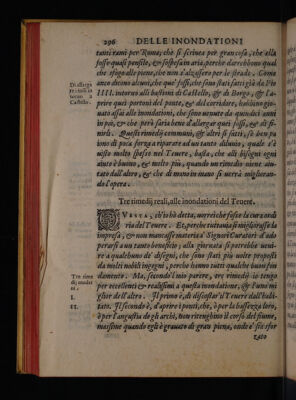 296 DELLE INONDATIONI
tanti rami per Roma; chè si scriue per gran cosa, che ella
fosse quasi pensile, & sospesa in aria, perche darebbono qual
che sfogo alle piene, che non s'alzassero per le strade. Come
anco dicono alcuni, che quei fossi, che sono stati fatti già da Pio
IIII. intorno alli bastioni di Castello, & di Borgo, & l'a-
prire quei portoni del ponte, & del corridare, habbino gio-
uato assai alle inondationi, che sono uenute da quindeci anni
in poi, & che però saria bene d'allargar quei fossi, & di fi-
nirli. Questi rimedij communi, & altri si fatti, se ben pa
iono di poca forza a riparare ad un tanto diluuio, quale s'è
uisto molto spesso nel Teuere, basta, che alli bisogni ogni
aiuto è buono, & molto più, quando un rimedio uiene aiu-
tato dall'altro, & che di mano in mano si uerrà miglioran-
do l'opera.
Di allarga
re i fossi in
torno à
Castello.
Tre rimedij reali, alle inondationi del Teuere.
QVESTA, ch'io hò detta, uorrei che fosse la cura ordi
ria del Teuere. Et, perche tuttauia si migliorasse la
impresa, & non mancasse materia a' Signori Curatori d'ado
perarsi a un tanto beneficio, alla giornata si potrebbe ueni-
re a qualchuno de' disegni, che sono stati più uolte proposti
da molti nobili ingegni, perche hanno tutti qualche buon fon
damento. Ma, secondo il mio parere, tre rimedij io tengo
per eccellenti & realissimi a questa inondatione, & l'uno mi
glior dell'altro. Il primo è, di discostar il Teuere dall'habi-
tato. Il secondo è, d'aprire i ponti, che, ò per la bassezza loro,
ò per l'angustia de gli archi, non ritenghino il corso del fiume,
massime quando egli è grauato di gran piena, onde è sia sfor
Tre rime
dij reali
I.
II.
zato